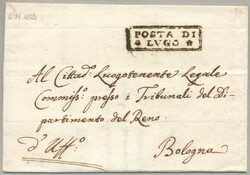 POSTA DI
LVGO
Al Cittad.° Luogotenente Legale
Commiss.° presso i Tribunali del Di-
partimento del Reno.
d'Uff.°
Bologna